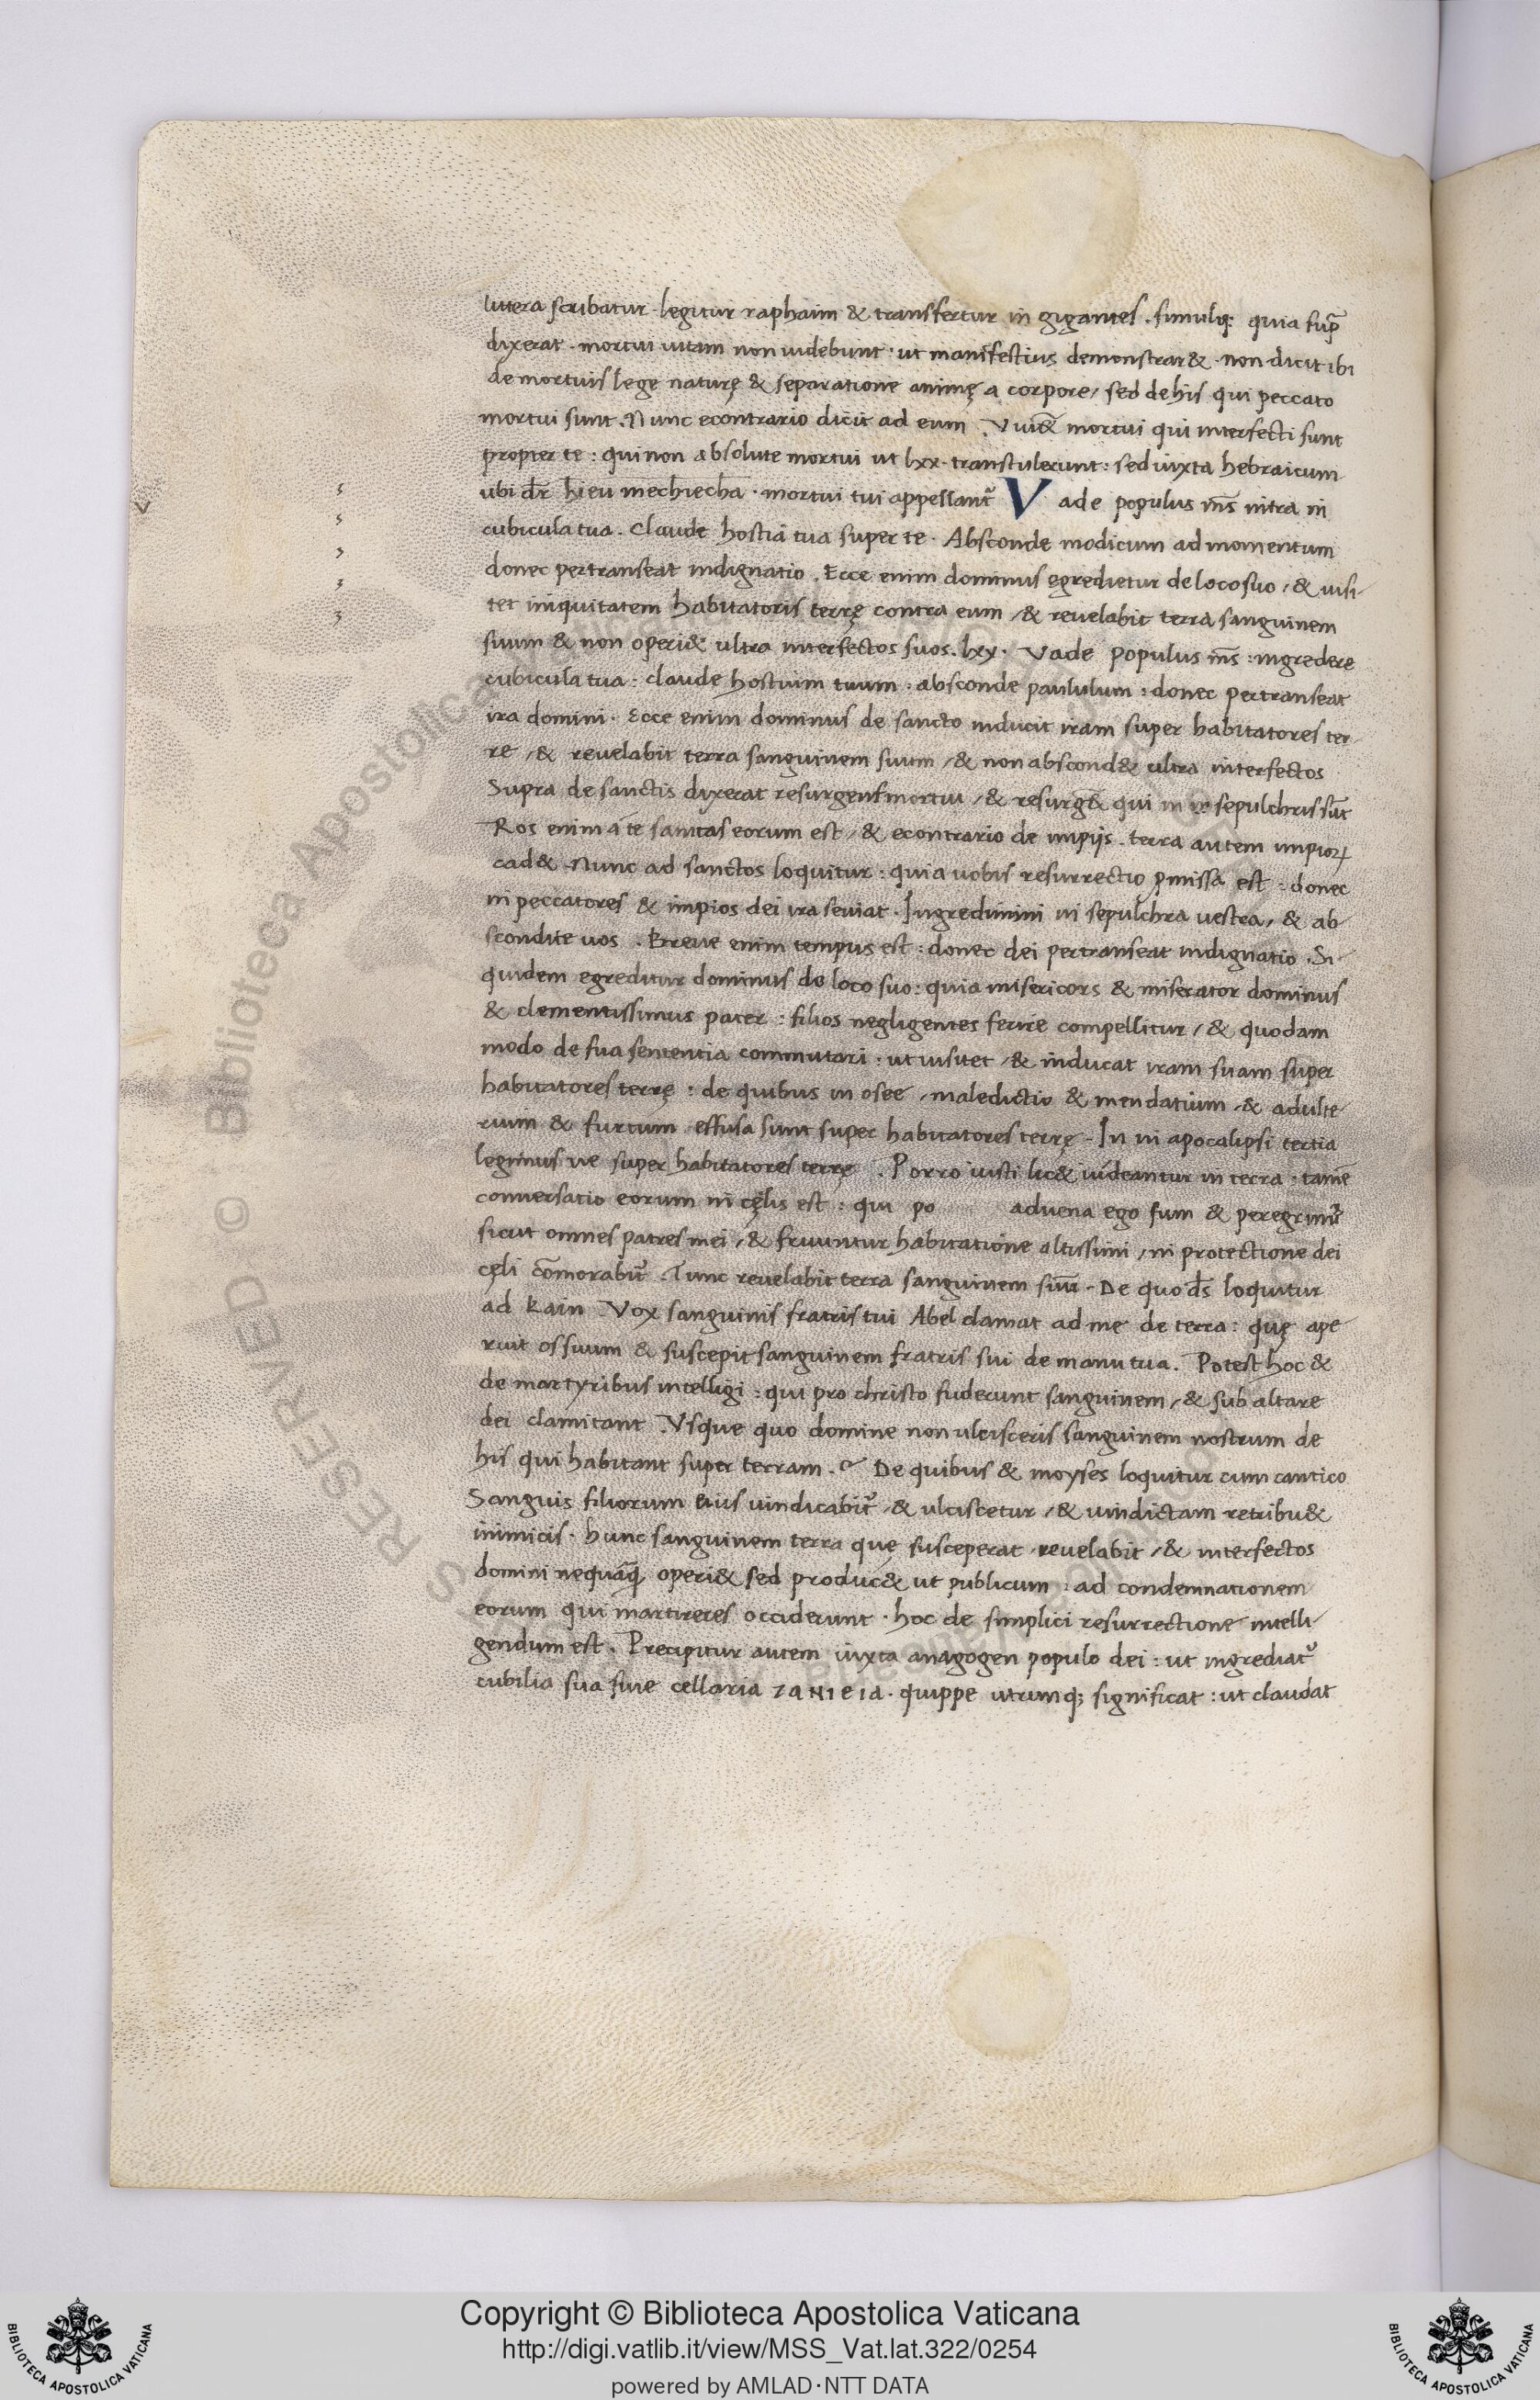 littera scribatur legitur raphaim & transfertur in gigantes . simulq; quia sup̄
dixerat . mortui uitam non uidebunt · ut manifestius demonstrar& . non dicit ibi
de mortuis lege naturę & separatione animę a corpore / sed de his qui peccato
mortui sunt . Nunc econtrario dicit ad eum . Viuēt mortui qui interfecti sunt
propter te : qui non absolute mortui ut lxx . transtulerunt : sed iuxta hebraicum
ubi dr̄ hieu mechiecha · mortui tui appellant᷑ Vade populus ms̄ intra in
cubicula tua . Claude hostiā tua super te . Absconde modicum ad momentum
donec pertranseat indignatio . Ecce enim dominus egredietur de loco suo / & uisi-
tet iniquitatem habitatoris terrę contra eum / & reuelabit terra sanguinem
suum & non operi& ultra interfectos suos . lxx . Vade populus ms̄ : ingredere
cubicula tua : claude hostium tuum . absconde paululum : donec pertranseat
ira domini . Ecce enim dominus de sancto inducit iram super habitatores ter-
re / & reuelabit terra sanguinem suum / & non abscond& ultra interfectos
Supra de sanctis dixerat resurgent mortui / & resurgēt qui in sepulchris sūt
Ros enim a te sanitas eorum est / & econtrario de impijs . terra autem impioꝝ
cad& . Nunc ad sanctos loquitur : quia uobis resurrectio ꝓmissa est : donec
in peccatores & impios dei ira seuiat . Ingredimini in sepulchra uestra / & ab-
scondite uos . Breue enim tempus est : donec dei pertranseat indignatio . Si-
quidem egreditur dominus de loco suo : quia misericors & miserator dominus
& clementissimus pater : filios negligentes ferire compellitur / & quodam
modo de sua sententia commutari : ut uisitet / & inducat iram suam super
habitatores terrę : de quibus in osee / maledictio & mendatium / & adulte-
rium & furtum effusa sunt super habitatores terrę . In in apocalipsi tertia
legimus ue super habitatores terrę . Porro iusti lic& uideantur in terra : tamē
conuersatio eorum in cęlis est : qui po aduena ego sum & peregrinus
sicut omnes patres mei / & fruuntur habitatione altissimi / in protectione dei
cęli cōmorabūt . Tunc reuelabit terra sanguinem suū . De quo ds̄ loquitur
ad kain . Vox sanguinis fratris tui Abel clamat ad me de terra : quę ape-
ruit os suum & suscepit sanguinem fratris sui de manu tua . Potest hoc &
de martyribus intelligi : qui pro christo fuderunt sanguinem / & sub altare
dei clamitant . Vsque quo domine non ulcisceris sanguinem nostrum de
his qui habitant super terram . De quibus & moyses loquitur cum cantico
Sanguis filiorum eius uindicabit᷑ / & ulciscetur / & uindictam retribu&
inimicis . hunc sanguinem terra quę susceperat reuelabit / & interfectos
domini nequāq̄ operi& sed produc& ut publicum : ad condemnationem
eorum qui martireres occiderunt . hoc de simplici resurrectione intelli-
gendum est . Precipitur autem iuxta anagogen populo dei : ut ingrediat᷑
cubilia sua siue cellaria ΖΑΝΙΕΙΑ . quippe utrumq; significat : ut claudat
© Biblioteca Apostolica Vaticana
Copyright © Biblioteca Apostolica Vaticana
http://digi.vatlib.it/view/MSS_Vat.lat.322/0254
powered by AMLAD·NTT DATA
BIBLIOTECA APOSTOLICA VATICANA
BIBLIOTECA APOSTOLICA VATICANA